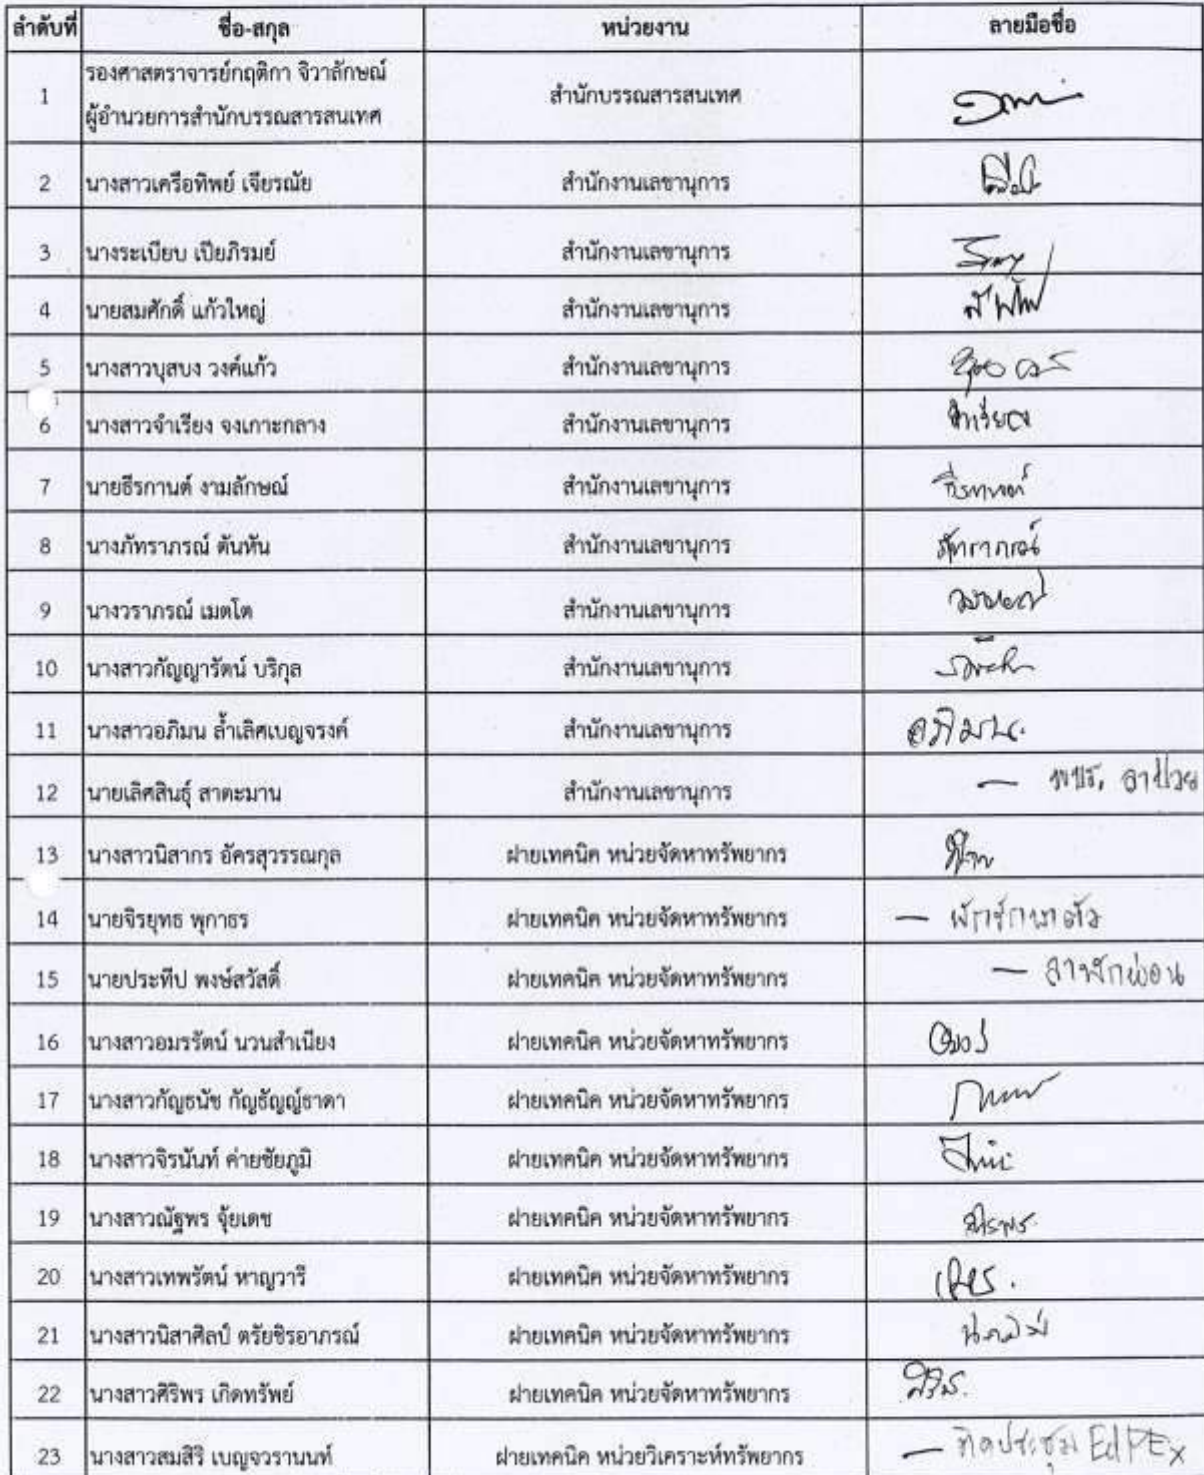 ลำดับที่ ชื่อ-สกุล หน่วยงาน ลายมือชื่อ
1 รองศาสตราจารย์กฤติกา จิวาลักษณ์ สำนักบรรณสารสนเทศ
ผู้อำนวยการสำนักบรรณสารสนเทศ
2 นางสาวเครือทิพย์ เจียรณัย สำนักงานเลขานุการ
3 นางระเบียบ เปียภิรมย์ สำนักงานเลขานุการ
4 นายสมศักดิ์ แก้วใหญ่ สำนักงานเลขานุการ
5 นางสาวบุสบง วงค์แก้ว สำนักงานเลขานุการ
6 นางสาวจำเรียง จงเกาะกลาง สำนักงานเลขานุการ จำเรียง
7 นายธีรกานต์ งามลักษณ์ สำนักงานเลขานุการ ธีรกานต์
8 นางภัทราภรณ์ ตันหัน สำนักงานเลขานุการ ภัทราภรณ์
9 นางวราภรณ์ เมตโต สำนักงานเลขานุการ
10 นางสาวกัญญารัตน์ บริกุล สำนักงานเลขานุการ
11 นางสาวอภิมน ล้ำเลิศเบญจรงค์ สำนักงานเลขานุการ อภิมน.
12 นายเลิศสินธุ์ สาตะมาน สำนักงานเลขานุการ — พขร. ลาป่วย
13 นางสาวนิสากร อัครสุวรรณกุล ฝ่ายเทคนิค หน่วยจัดหาทรัพยากร
14 นายจิรยุทธ พุกาธร ฝ่ายเทคนิค หน่วยจัดหาทรัพยากร — พักรักษาตัว
15 นายประทีป พงษ์สวัสดิ์ ฝ่ายเทคนิค หน่วยจัดหาทรัพยากร — ลาพักผ่อน
16 นางสาวอมรรัตน์ นวนสำเนียง ฝ่ายเทคนิค หน่วยจัดหาทรัพยากร
17 นางสาวกัญธนัช กัญธัญญ์ธาดา ฝ่ายเทคนิค หน่วยจัดหาทรัพยากร
18 นางสาวจิรนันท์ ค่ายชัยภูมิ ฝ่ายเทคนิค หน่วยจัดหาทรัพยากร
19 นางสาวณัฐพร จุ้ยเดช ฝ่ายเทคนิค หน่วยจัดหาทรัพยากร
20 นางสาวเทพรัตน์ หาญวารี ฝ่ายเทคนิค หน่วยจัดหาทรัพยากร
21 นางสาวนิสาศิลป์ ตรัยชิรอาภรณ์ ฝ่ายเทคนิค หน่วยจัดหาทรัพยากร
22 นางสาวศิริพร เกิดทรัพย์ ฝ่ายเทคนิค หน่วยจัดหาทรัพยากร
23 นางสาวสมสิริ เบญจวรานนท์ ฝ่ายเทคนิค หน่วยวิเคราะห์ทรัพยากร — ติดประชุม EdPEx